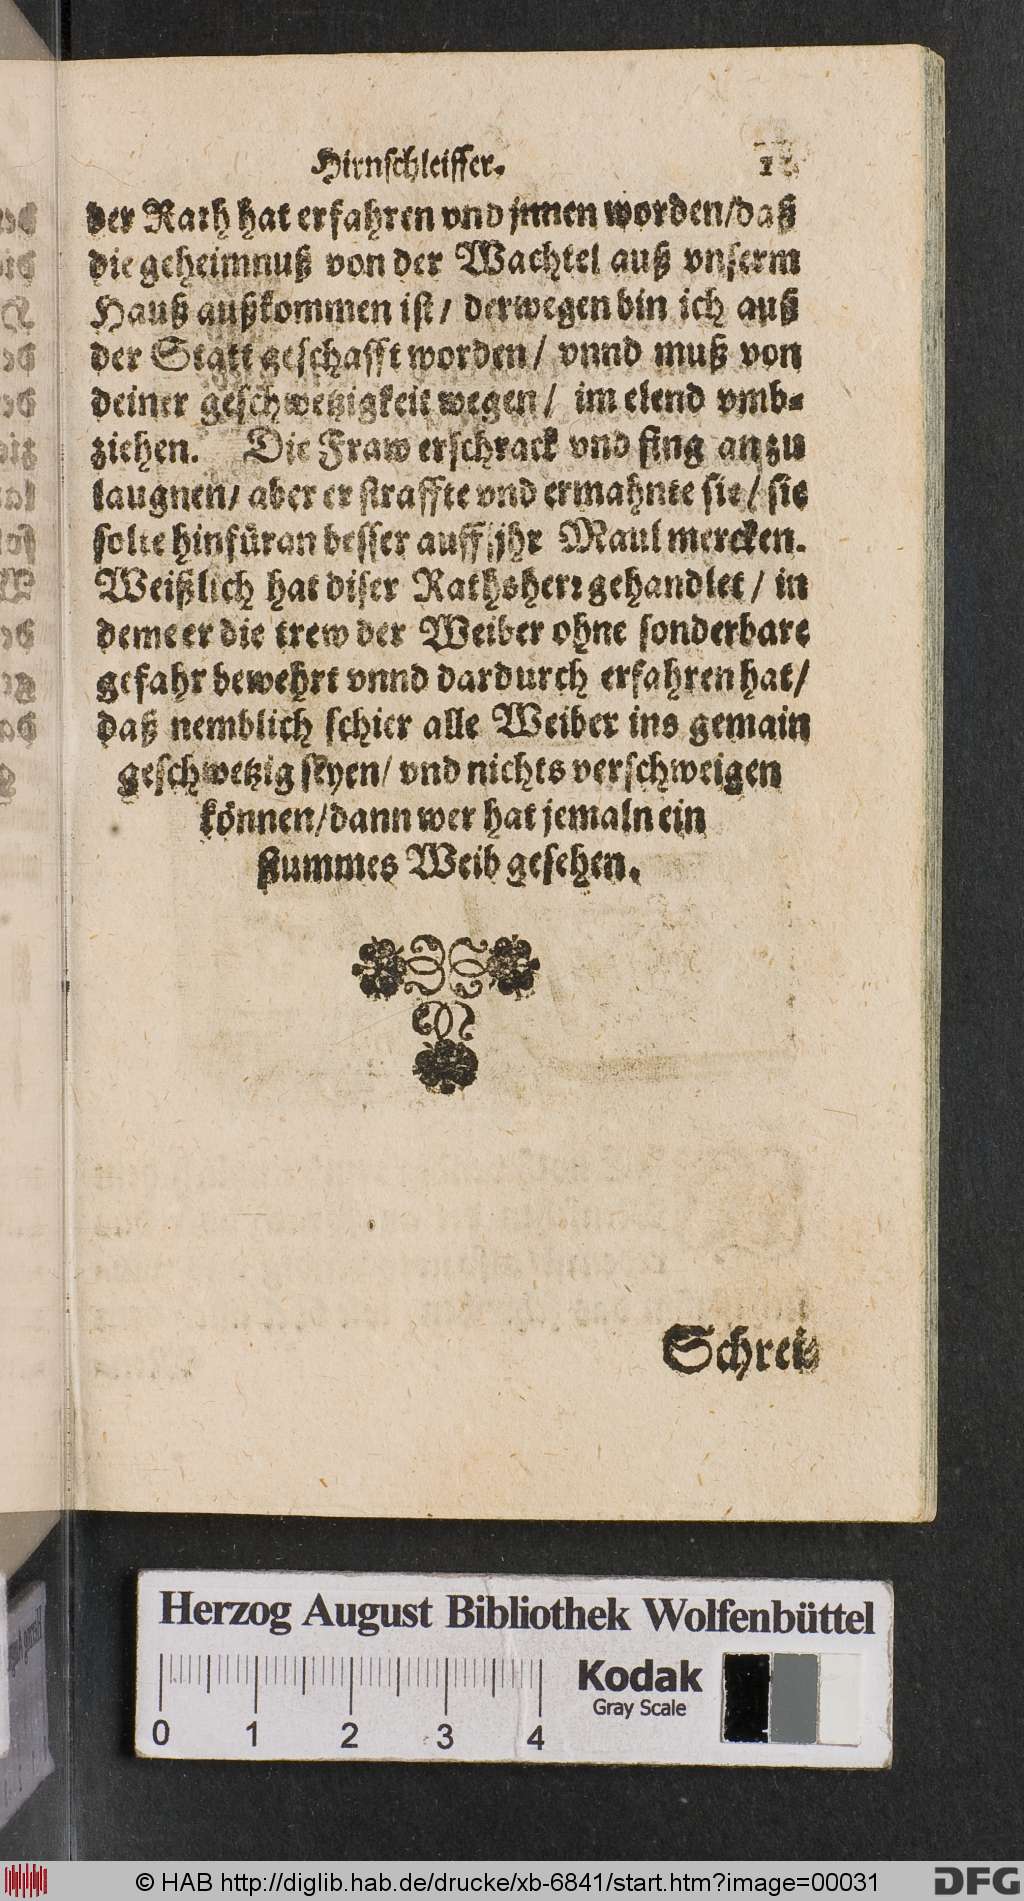 Hirnschleiffer.
der Rath hat erfahren vnd jnnen worden/daß
die geheimnuß von der Wachtel auß vnserm
Hauß außkommen ist/ derwegen bin ich auß
der Statt geschafft worden/ vnnd muß von
deiner geschwetzigkeit wegen/ im elend vmb-
ziehen. Die Fraw erschrack vnd fing an zu
laugnen/ aber er straffte vnd ermahnte sie/ sie
solte hinfüran besser auff jhr Maul mercken.
Weißlich hat diser Rathsherr gehandlet/ in
deme er die trew der Weiber ohne sonderbare
gefahr bewehrt vnnd dardurch erfahren hat/
daß nemblich schier alle Weiber ins gemain
geschwetzig seyen/ vnd nichts verschweigen
können/dann wer hat jemaln ein
stummes Weib gesehen.
Schrei-
Herzog August Bibliothek Wolfenbüttel
0 1 2 3 4
Kodak
Gray Scale
© HAB http://diglib.hab.de/drucke/xb-6841/start.htm?image=00031
DFG